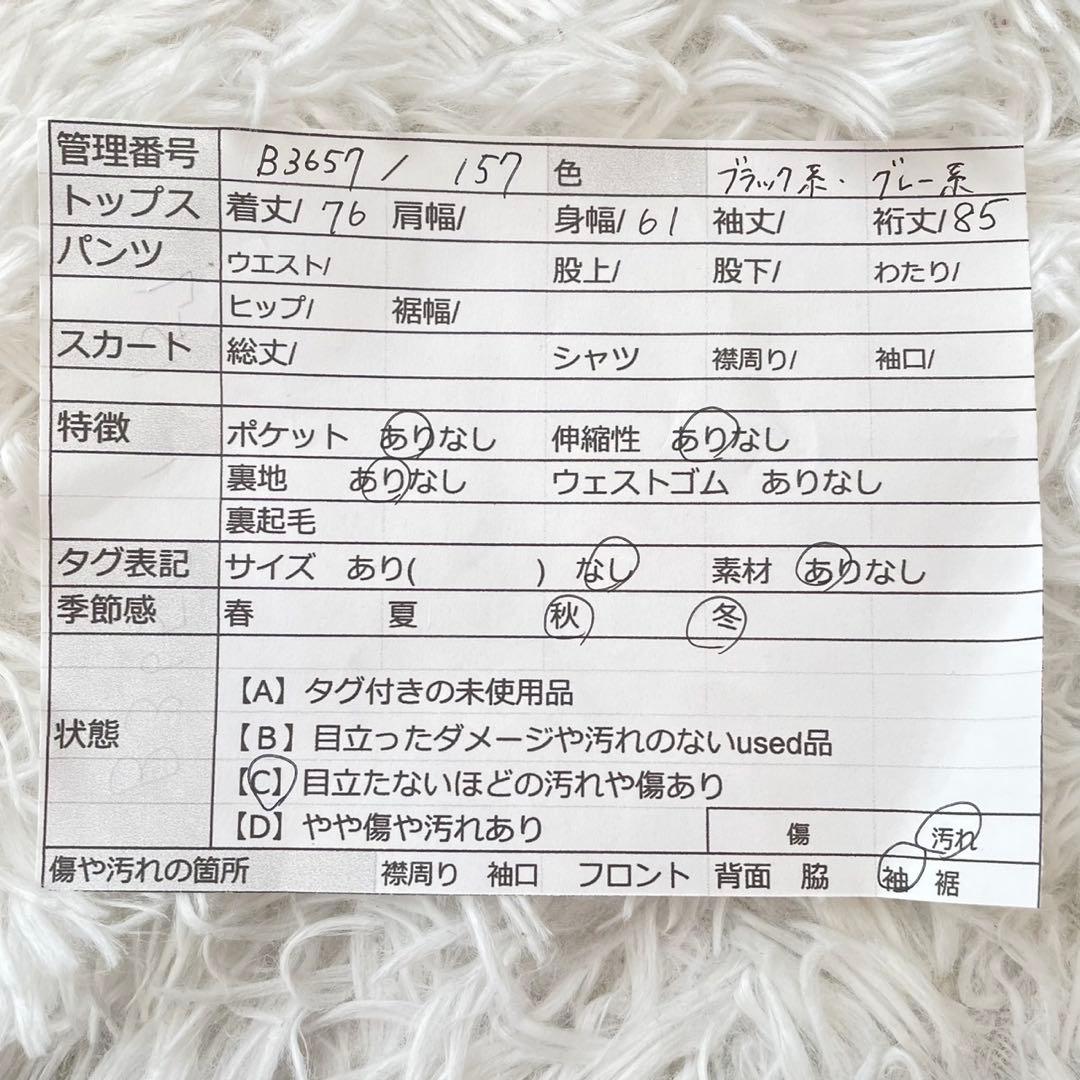 管理番号 B3657 / 157 色 ブラック系・グレー系
トップス 着丈/ 76 肩幅/ 身幅/ 61 袖丈/ 裄丈/85
パンツ ウエスト/ 股上/ 股下/ わたり/
ヒップ/ 裾幅/
スカート 総丈/ シャツ 襟周り/ 袖口/
特徴 ポケット ありなし 伸縮性 ありなし
裏地 ありなし ウェストゴム ありなし
裏起毛
タグ表記 サイズ あり( ) なし 素材 ありなし
季節感 春 夏 秋 冬
【A】タグ付きの未使用品
状態 【B】目立ったダメージや汚れのないused品
【C】目立たないほどの汚れや傷あり
【D】やや傷や汚れあり 傷 汚れ
傷や汚れの箇所 襟周り 袖口 フロント 背面 脇 袖 裾